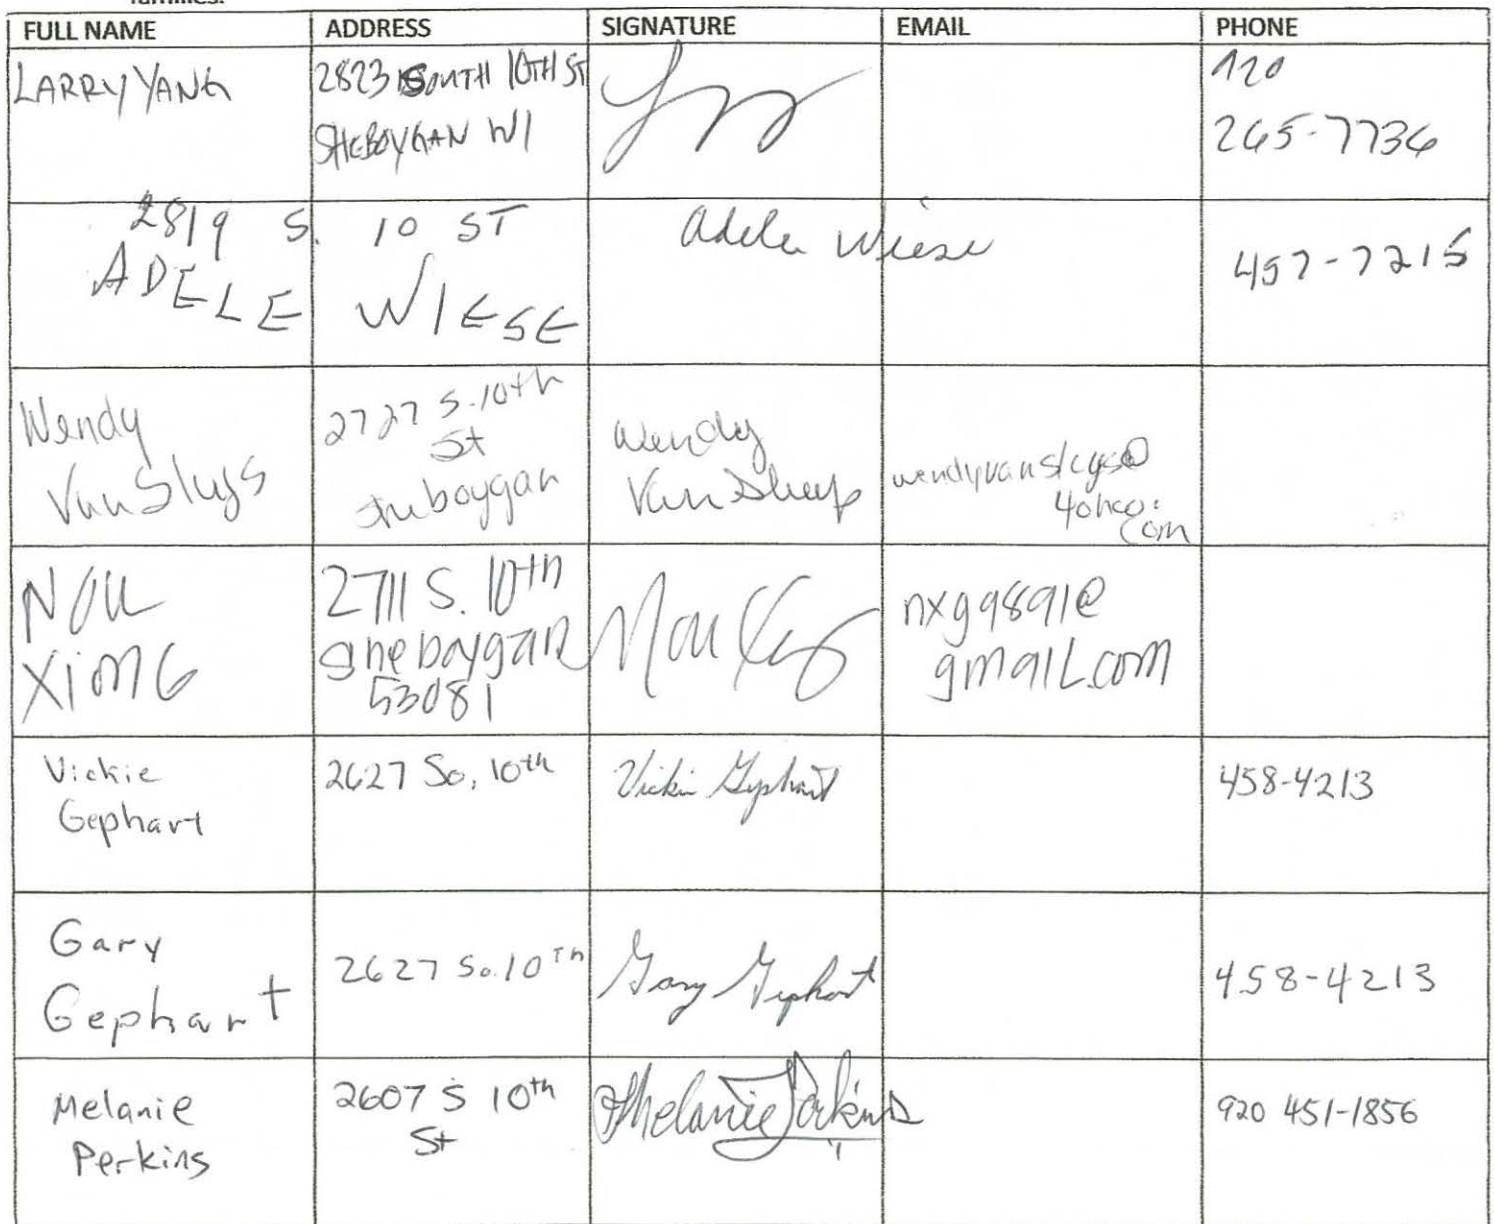 families.
FULL NAME ADDRESS SIGNATURE EMAIL PHONE
LARRY YANG
2823 SOUTH 10TH ST
SHEBOYGAN WI
920
265-7736
2819 S. 10 ST
ADELE WIESE
Adele Wiese
457-7215
Wendy
VanSluys
2727 S. 10th
St
Sheboygan
Wendy
VanSluys
wendyvansluys@
yahoo.
com
NOU
XIONG
2711 S. 10th
sheboygan
53081
Nou Xiong
nxg9891@
gmail.com
Vickie
Gephart
2627 So. 10th
Vickie Gephart
458-4213
Gary
Gephart
2627 So. 10th
Gary Gephart
458-4213
Melanie
Perkins
2607 S 10th
St
Melanie Perkins
920 451-1856